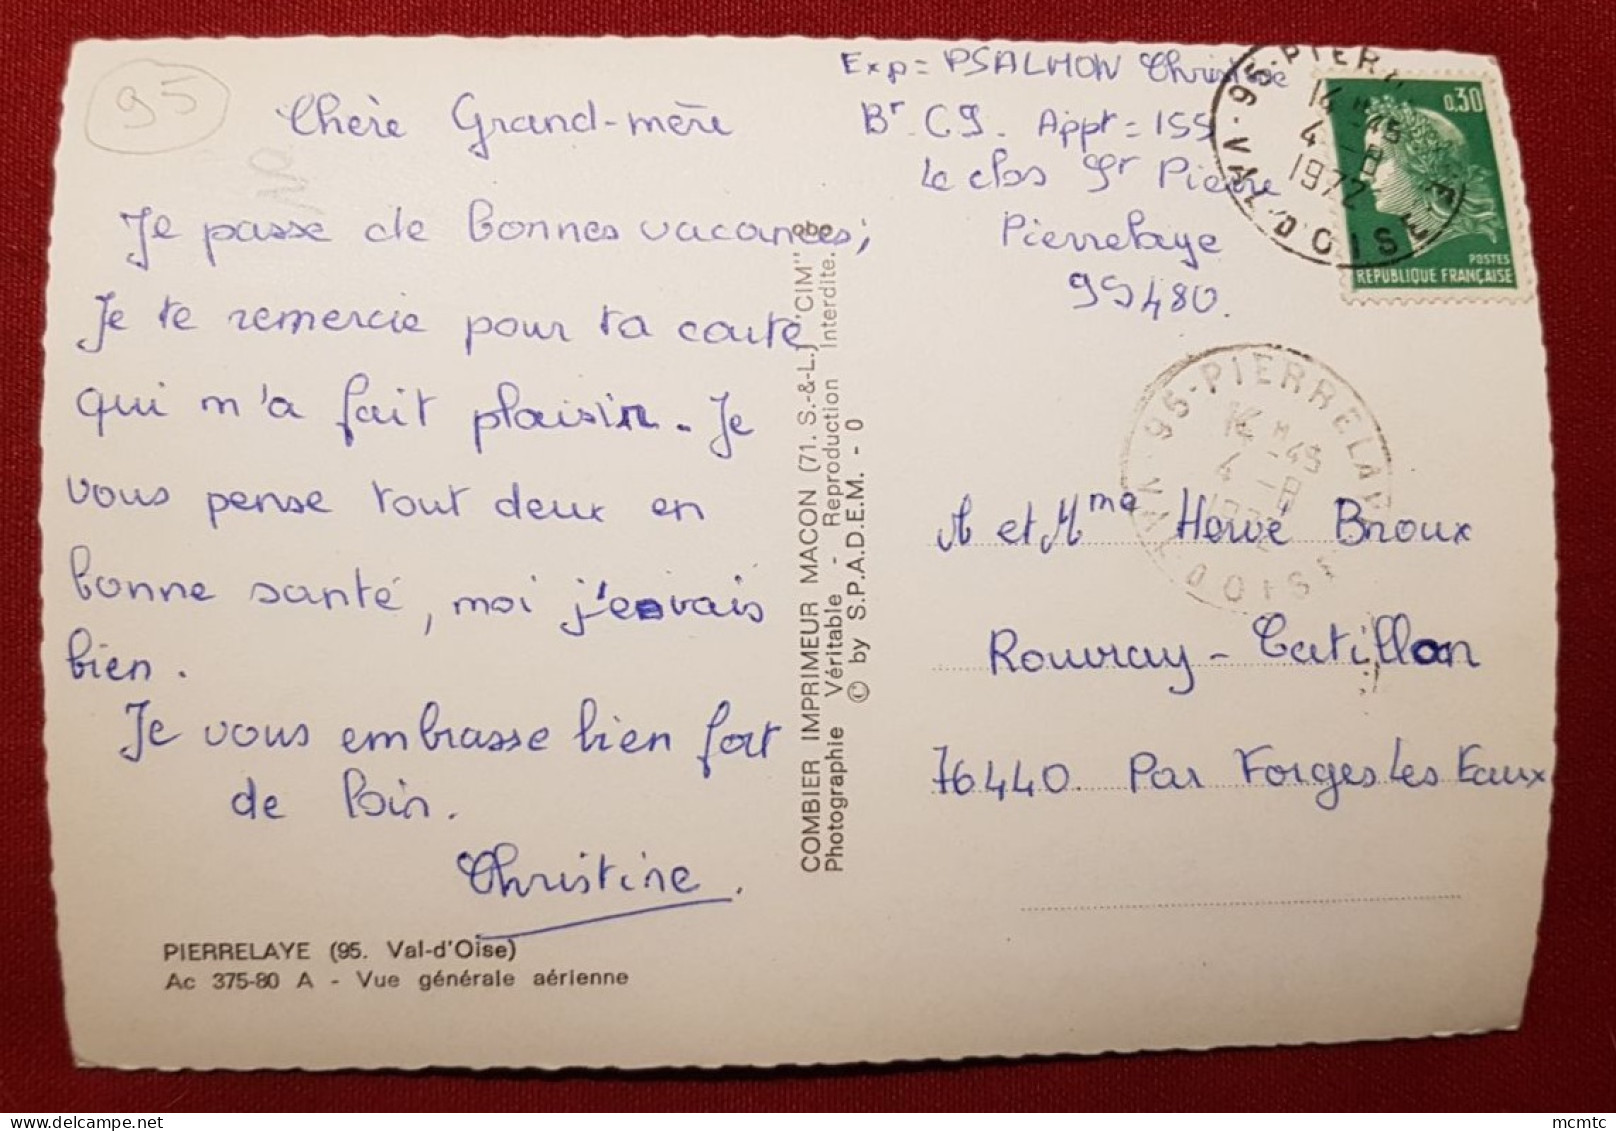 95
Chère Grand-mère
Je passe de bonnes vacances,
Je te remercie pour ta carte
qui m'a fait plaisir. Je
vous pense tout deux en
bonne santé, moi j'e vais
bien.
Je vous embrasse bien fort
de loin.
Christine.
PIERRELAYE (95. Val-d'Oise)
Ac 375-80 A - Vue générale aérienne
COMBIER IMPRIMEUR MACON (71. S.-&-L.) "CIM"
Photographie Véritable - Reproduction Interdite.
© by S.P.A.D.E.M. - 0
Exp = PSALMON Christine
Bt C9. Appt = 155
Le clos St Pierre
Pierrelaye
95480.
95-PIER
14 H 45
4 -8
1972
VAL-D'OISE
0,30
POSTES
REPUBLIQUE FRANÇAISE
95-PIERRELAYE
14 H 45
4 -8
1972
VAL D'OISE
M et Mme Hervé Broux
Rouvray-Catillon
76440 Par Forges Les Eaux
mcmtc